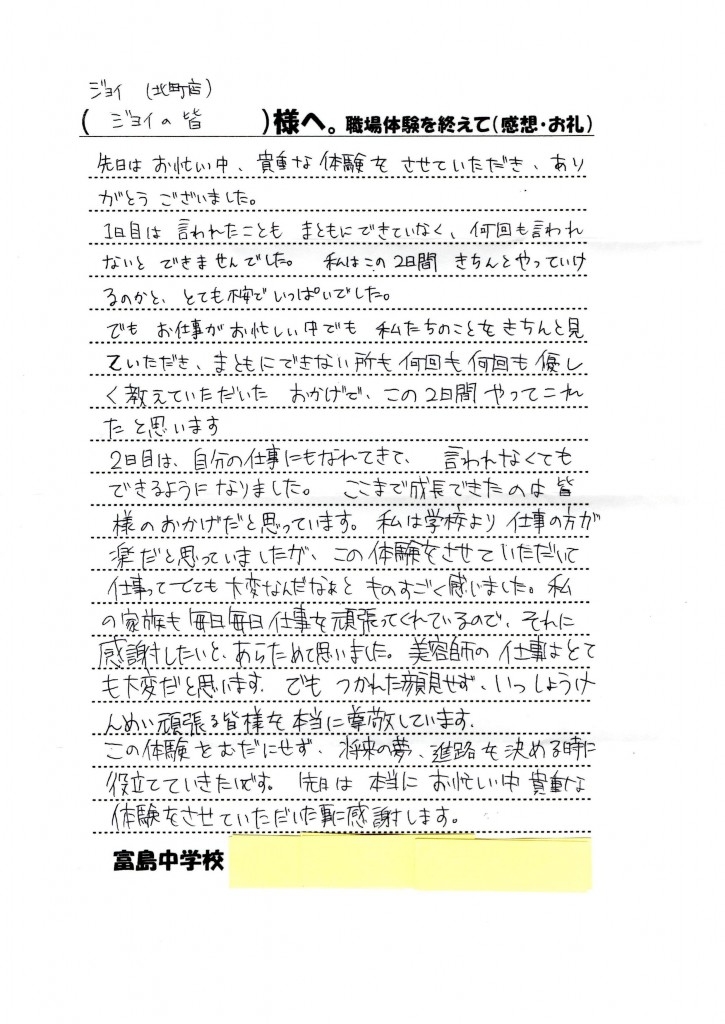 ジョイ (北町店)
( ジョイの皆 )様へ。職場体験を終えて(感想・お礼)
先日は お忙い中、貴重な体験を させていただき、あり
がとう ございました。
1日目は 言われたことも まともにできていなく、何回も言われ
ないと できませんでした。 私はこの2日間 きちんとやっていけ
るのかと、とても不安で いっぱいでした。
でも お仕事が お忙しい中でも 私たちのことをきちんと見
ていただき、まともにできない所も 何回も何回も優し
く教えていただいた おかげで、この2日間 やってこれ
たと思います
2日目は、自分の仕事にもなれてきて、 言われなくても
できるようになりました。 ここまで成長できたのは 皆
様のおかげだと思っています。 私は学校より 仕事の方が
楽だと思っていましたが、この体験をさせていただいて
仕事ってとても 大変なんだなぁと ものすごく感いました。私
の家族も 毎日毎日仕事を頑張ってくれているので、それに
感謝したいと、あらためて思いました。美容師の 仕事はとて
も大変だと思います. でも つかれた顔見せず、いっしょうけ
んめい頑張る皆様を本当に尊敬しています.
この体験をむだにせず、将来の夢、進路を決める時に
役立てていきたいです。 先日は 本当に お忙い中 貴重な
体験をさせていただいた事に感謝します。
富島中学校